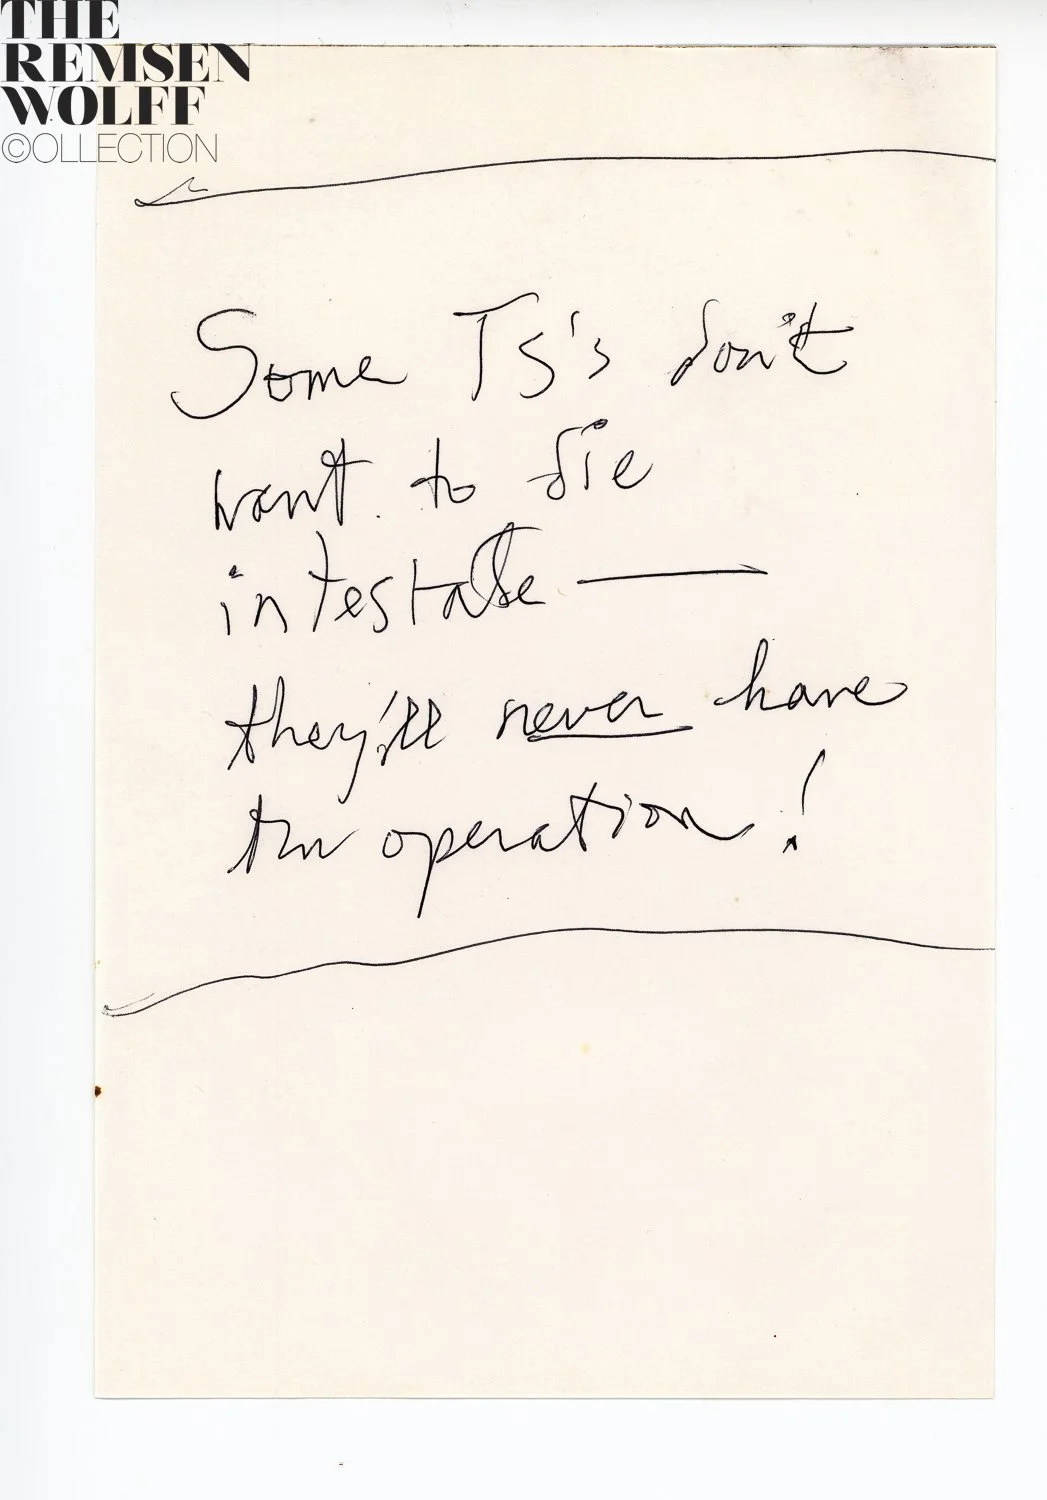 THE
REMSEN
WOLFF
©OLLECTION
Some TS's don't
want to die
intestate —
they'll never have
the operation!